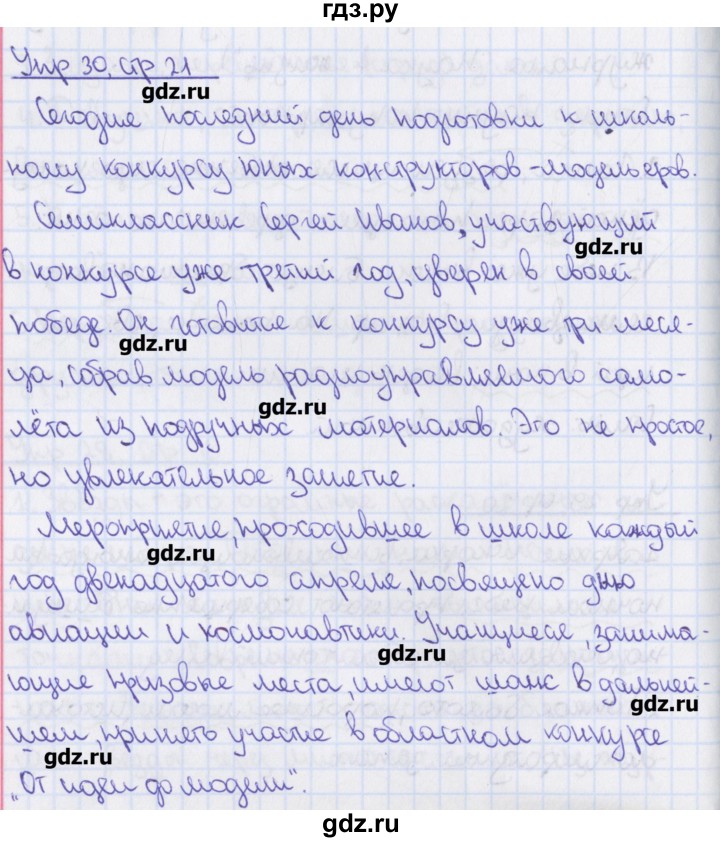 гдз.ру
Упр 30, стр 21
gdz.ru
Сегодня последний день подготовки к школь-
ному конкурсу юных конструкторов-модельеров.
Семиклассник Сергей Иванов, участвующий
gdz.ru
в конкурсе уже третий год, уверен в своей
победе. Он готовится к конкурсу уже три меся-
gdz.ru
ца, собрав модель радиоуправляемого само-
gdz.ru
лёта из подручных материалов. Это не простое,
но увлекательное занятие.
Мероприятие, проходившее в школе каждый
gdz.ru
год двенадцатого апреля, посвящено дню
авиации и космонавтики. Учащиеся, занима-
gdz.ru
ющие призовые места, имеют шанс в дальней-
gdz.ru
шем, принять участие в областном конкурсе
gdz.ru
"От идеи до модели".
gdz.ru